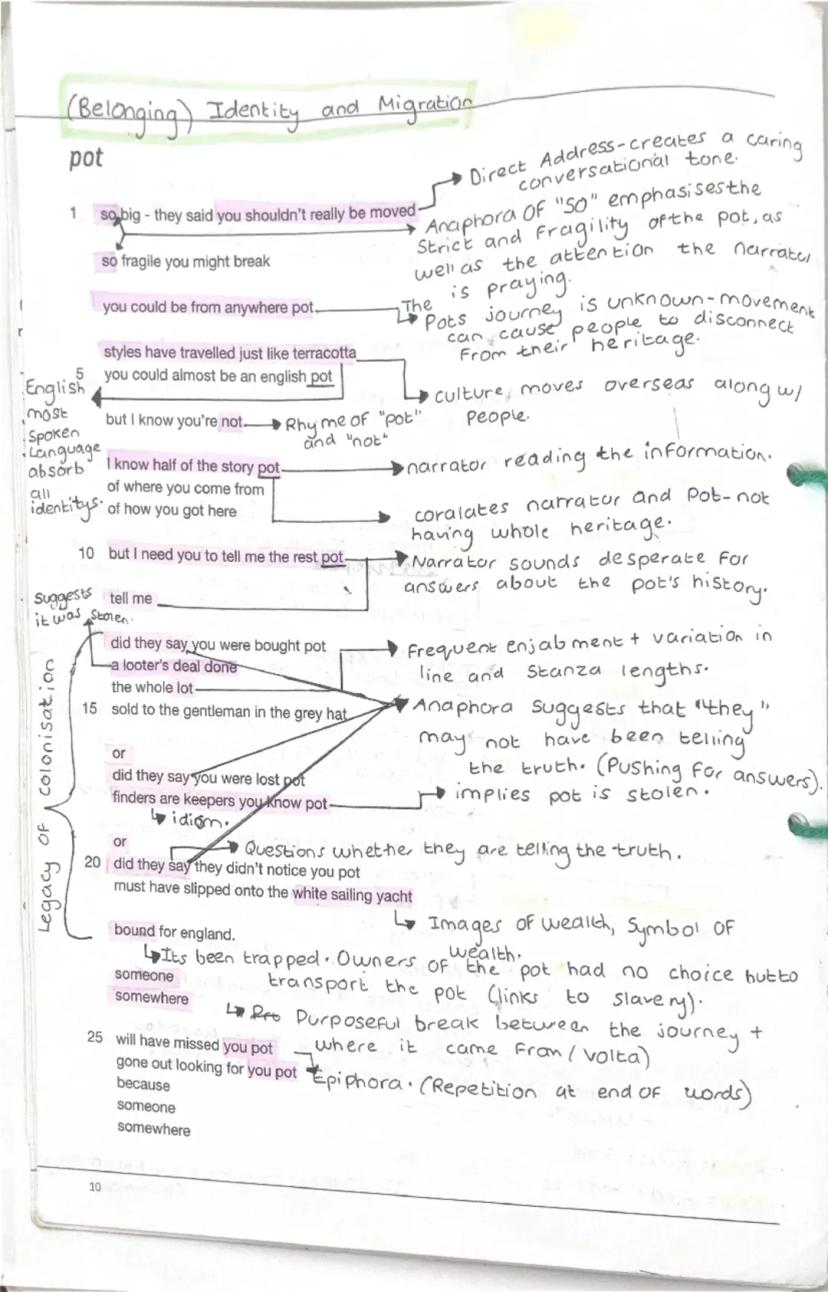 (Belonging) Identity and Migration
pot
Direct Address-creates a caring
conversational tone.
1 so big - they said you shouldn't really be moved
Anaphora of "so" emphasises the
Strict and Fragility of the pot, as
well as the attention the narrator
is praying.
so fragile you might break
you could be from anywhere pot
The
Pots journey is unknown-movement
can cause people to disconnect
From their heritage.
styles have travelled just like terracotta
5 you could almost be an english pot
culture moves overseas along w/
People.
English
most
Spoken
Language
absorb
all
identitys.
but I know you're not
Rhyme of "pot"
and "not"
I know half of the story pot
narrator reading the information.
of where you come from
of how you got here
coralates narrator and Pot-not
having whole heritage.
10 but I need you to tell me the rest pot
Narrator sounds desperate for
answers about the pot's history.
tell me
Suggests
it was stolen.
did they say you were bought pot
Frequent enjabment + variation in
line and Stanza lengths.
a looter's deal done
the whole lot
15 sold to the gentleman in the grey hat
Anaphora Suggests that "they"
may not have been telling
the truth. (Pushing for answers).
Legacy of Colonisation
or
did they say you were lost pot
finders are keepers you know pot
implies pot is stolen.
idiom.
or
Questions whether they are telling the truth.
20 did they say they didn't notice you pot
must have slipped onto the white sailing yacht
Images of wealth, Symbol of
wealth.
bound for england.
Its been trapped. Owners of the pot had no choice but to
transport the pot (links to slavery).
someone
somewhere
Pro Purposeful break between the journey +
where it came from / volta)
25 will have missed you pot
gone out looking for you pot
Epiphora. (Repetition at end of words)
because
someone
somewhere
10